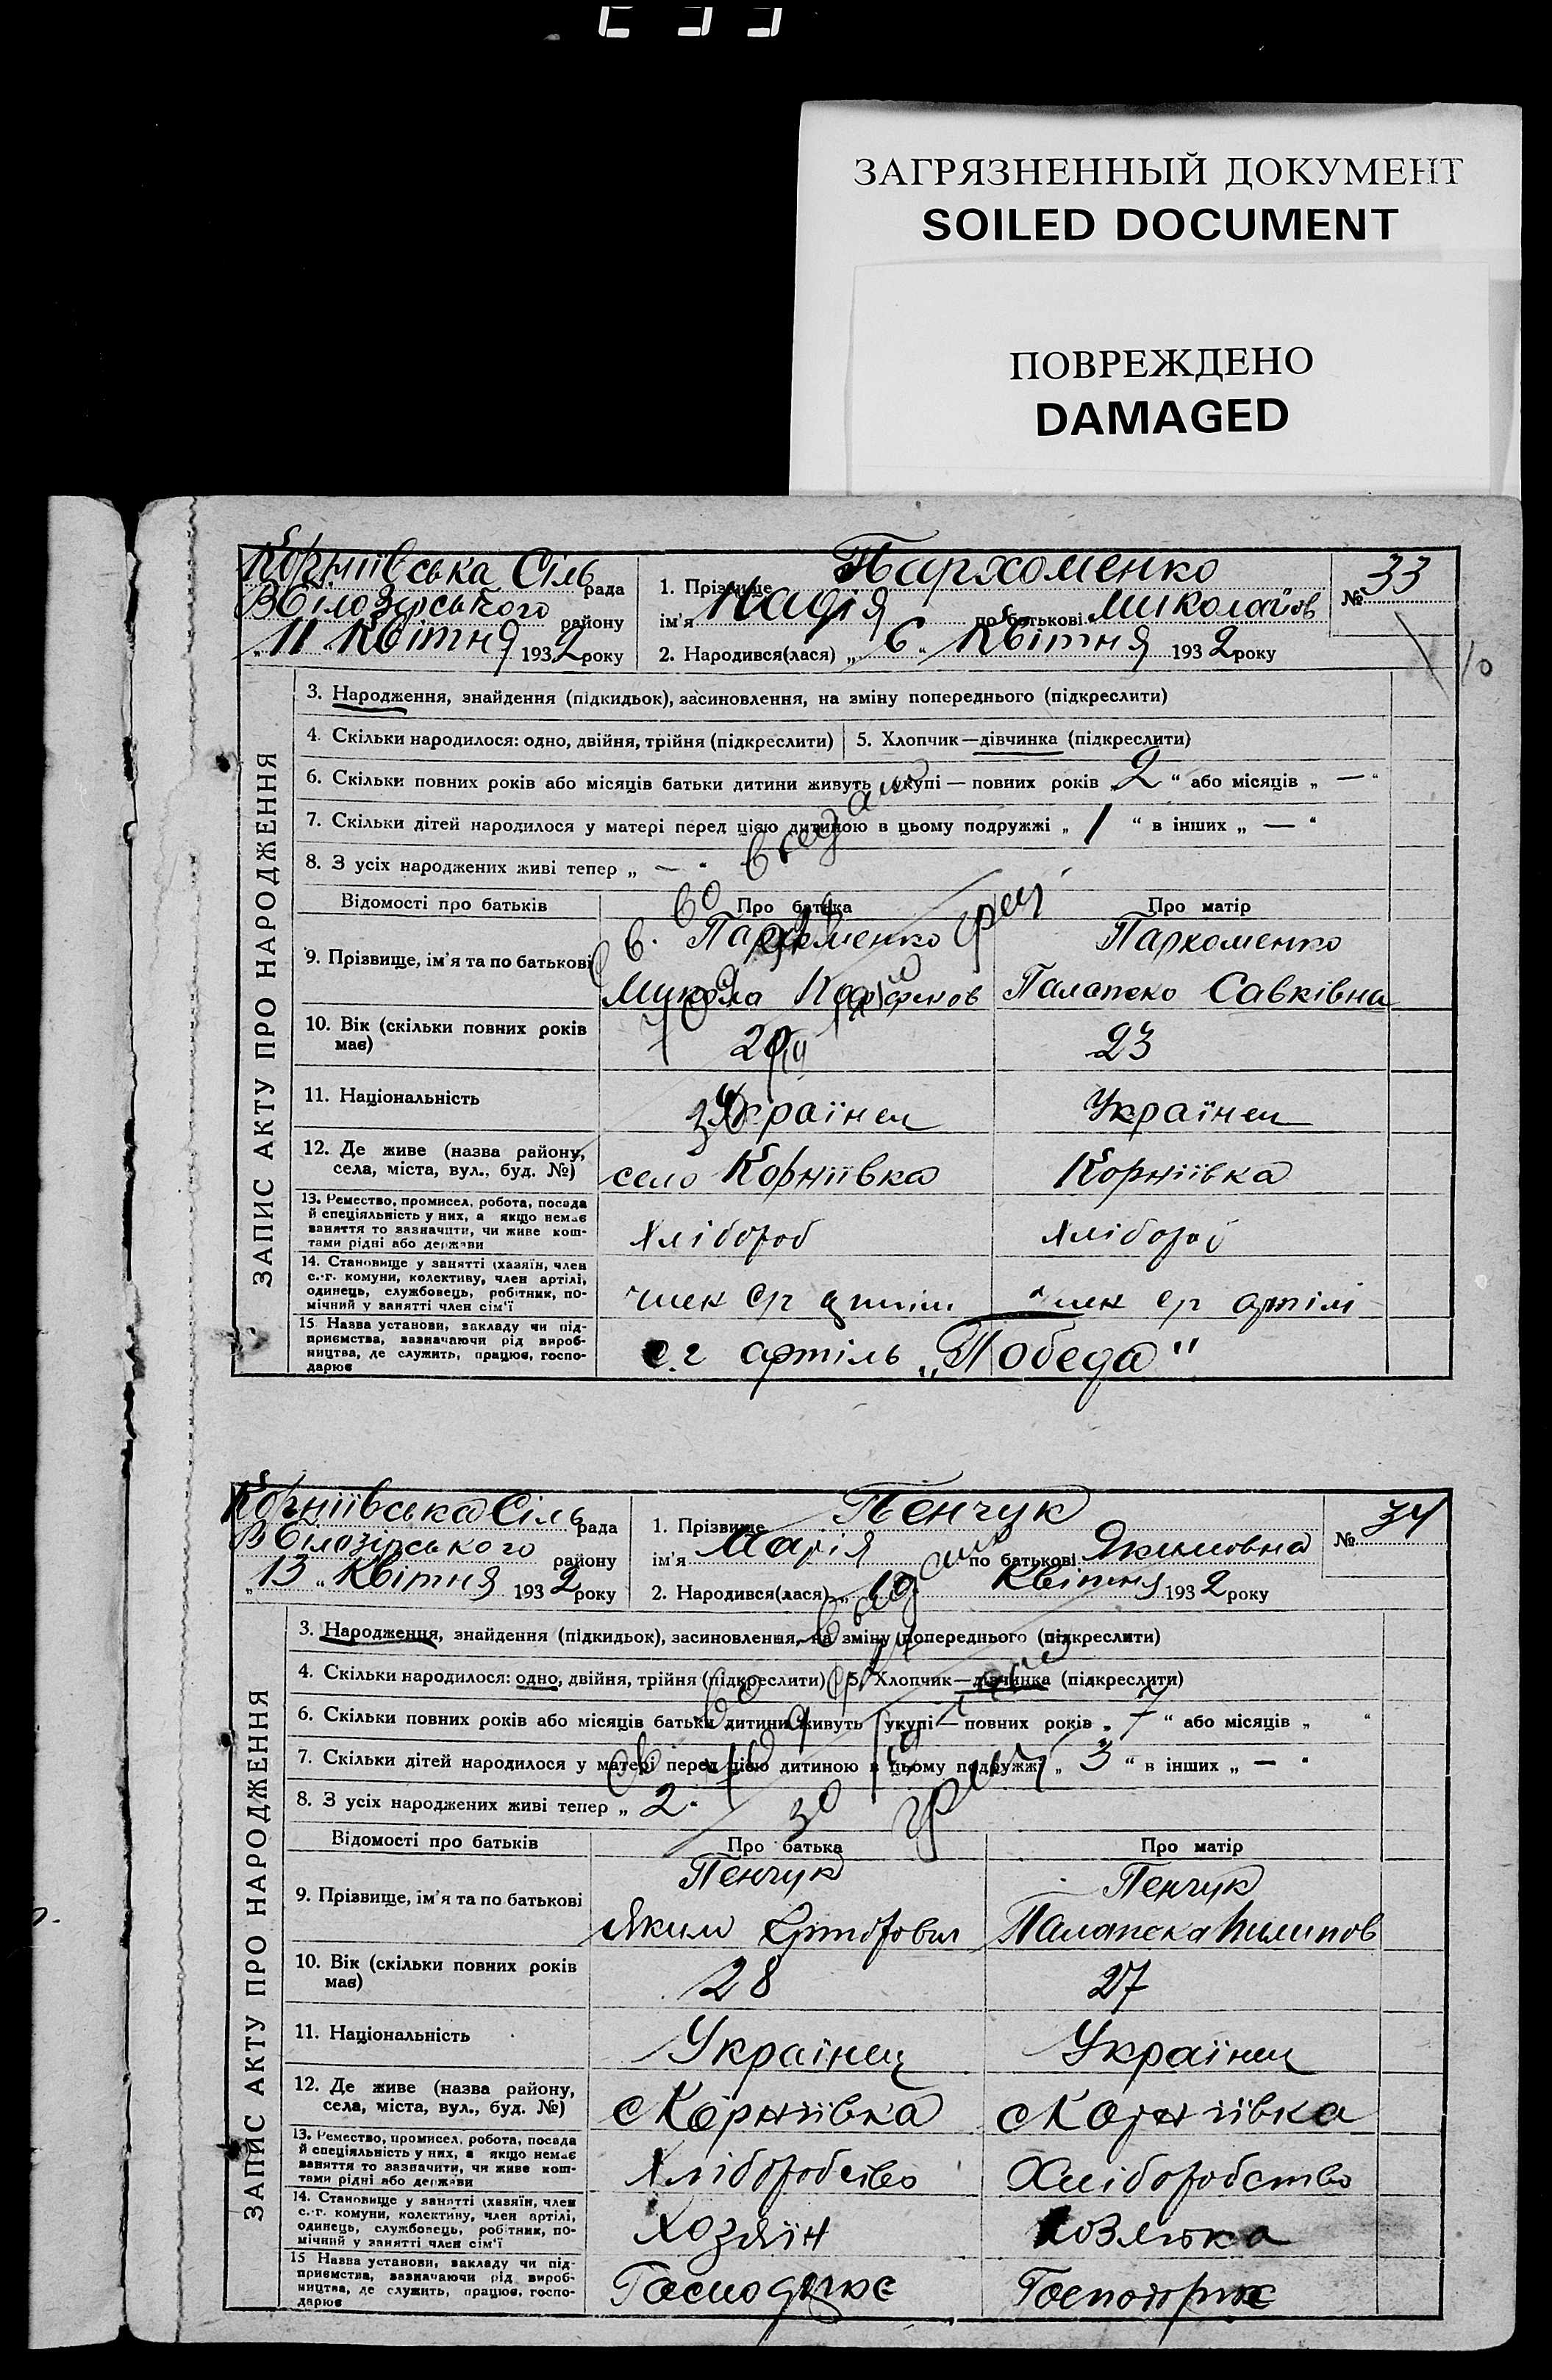 ЗАГРЯЗНЕННЫЙ ДОКУМЕНТ
SOILED DOCUMENT
ПОВРЕЖДЕНО
DAMAGED
ЗАПИС АКТУ ПРО НАРОДЖЕННЯ
Корніївська Сіль рада
В Білозірського району
„11 Квітня 1932 року
1. Прізвище Пархоменко
ім'я Надія по батькові Миколаїов
2. Народився(лася) „6“ Квітня 1932 року
№ 33
10
3. Народження, знайдення (підкидьок), засиновлення, на зміну попереднього (підкреслити)
4. Скільки народилося: одно, двійня, трійня (підкреслити) 5. Хлопчик—дівчинка (підкреслити)
6. Скільки повних років або місяців батьки дитини живуть укупі — повних років „2“ або місяців „—“
7. Скільки дітей народилося у матері перед цією дитиною в цьому подружжі „1“ в інших „—“
8. З усіх народжених живі тепер „—“
Відомості про батьків Про батька Про матір
9. Прізвище, ім'я та по батькові Пархоменко Пархоменко
Микола Палапеко Савківна
10. Вік (скільки повних років має) 23
11. Національність Українец Українец
12. Де живе (назва району, села, міста, вул., буд. №) село Корніївка Корніївка
13. Ремество, промисел, робота, посада й спеціяльність у них, а якщо немає заняття то зазначити, чи живе коштами рідні або держави Хлібороб Хлібороб
14. Становище у занятті (хазяїн, член с.-г. комуни, колективу, член артілі, одинець, службовець, робітник, помічний у занятті член сім'ї член ср артіли член ср артілі
15 Назва установи, закладу чи підприємства, зазначаючи рід виробництва, де служить, працює, господарює с.г артіль „Победа"
ЗАПИС АКТУ ПРО НАРОДЖЕННЯ
Корніївська Сіль рада
В Білозірського району
„13“ Квітня 1932 року
1. Прізвище Пенчук
ім'я Марія по батькові Якимовна
2. Народився(лася) „10 Квітня 1932 року
№ 34
3. Народження, знайдення (підкидьок), засиновлення, на зміну попереднього (підкреслити)
4. Скільки народилося: одно, двійня, трійня (підкреслити) 5. Хлопчик—дівчинка (підкреслити)
6. Скільки повних років або місяців батьки дитини живуть укупі — повних років „7“ або місяців „ “
7. Скільки дітей народилося у матері перед цією дитиною в цьому подружжі „3“ в інших „—“
8. З усіх народжених живі тепер „2“
Відомості про батьків Про батька Про матір
9. Прізвище, ім'я та по батькові Пенчук Пенчук
Яким Палапека Пилипов
10. Вік (скільки повних років має) 28 27
11. Національність Українец Українец
12. Де живе (назва району, села, міста, вул., буд. №) с Корніївка с Корніївка
13. Ремество, промисел, робота, посада й спеціяльність у них, а якщо немає заняття то зазначити, чи живе коштами рідні або держави Хліборобство Хліборобство
14. Становище у занятті (хазяїн, член с.-г. комуни, колективу, член артілі, одинець, службовець, робітник, помічний у занятті член сім'ї Хозяїн
15 Назва установи, закладу чи підприємства, зазначаючи рід виробництва, де служить, працює, господарює Господарює